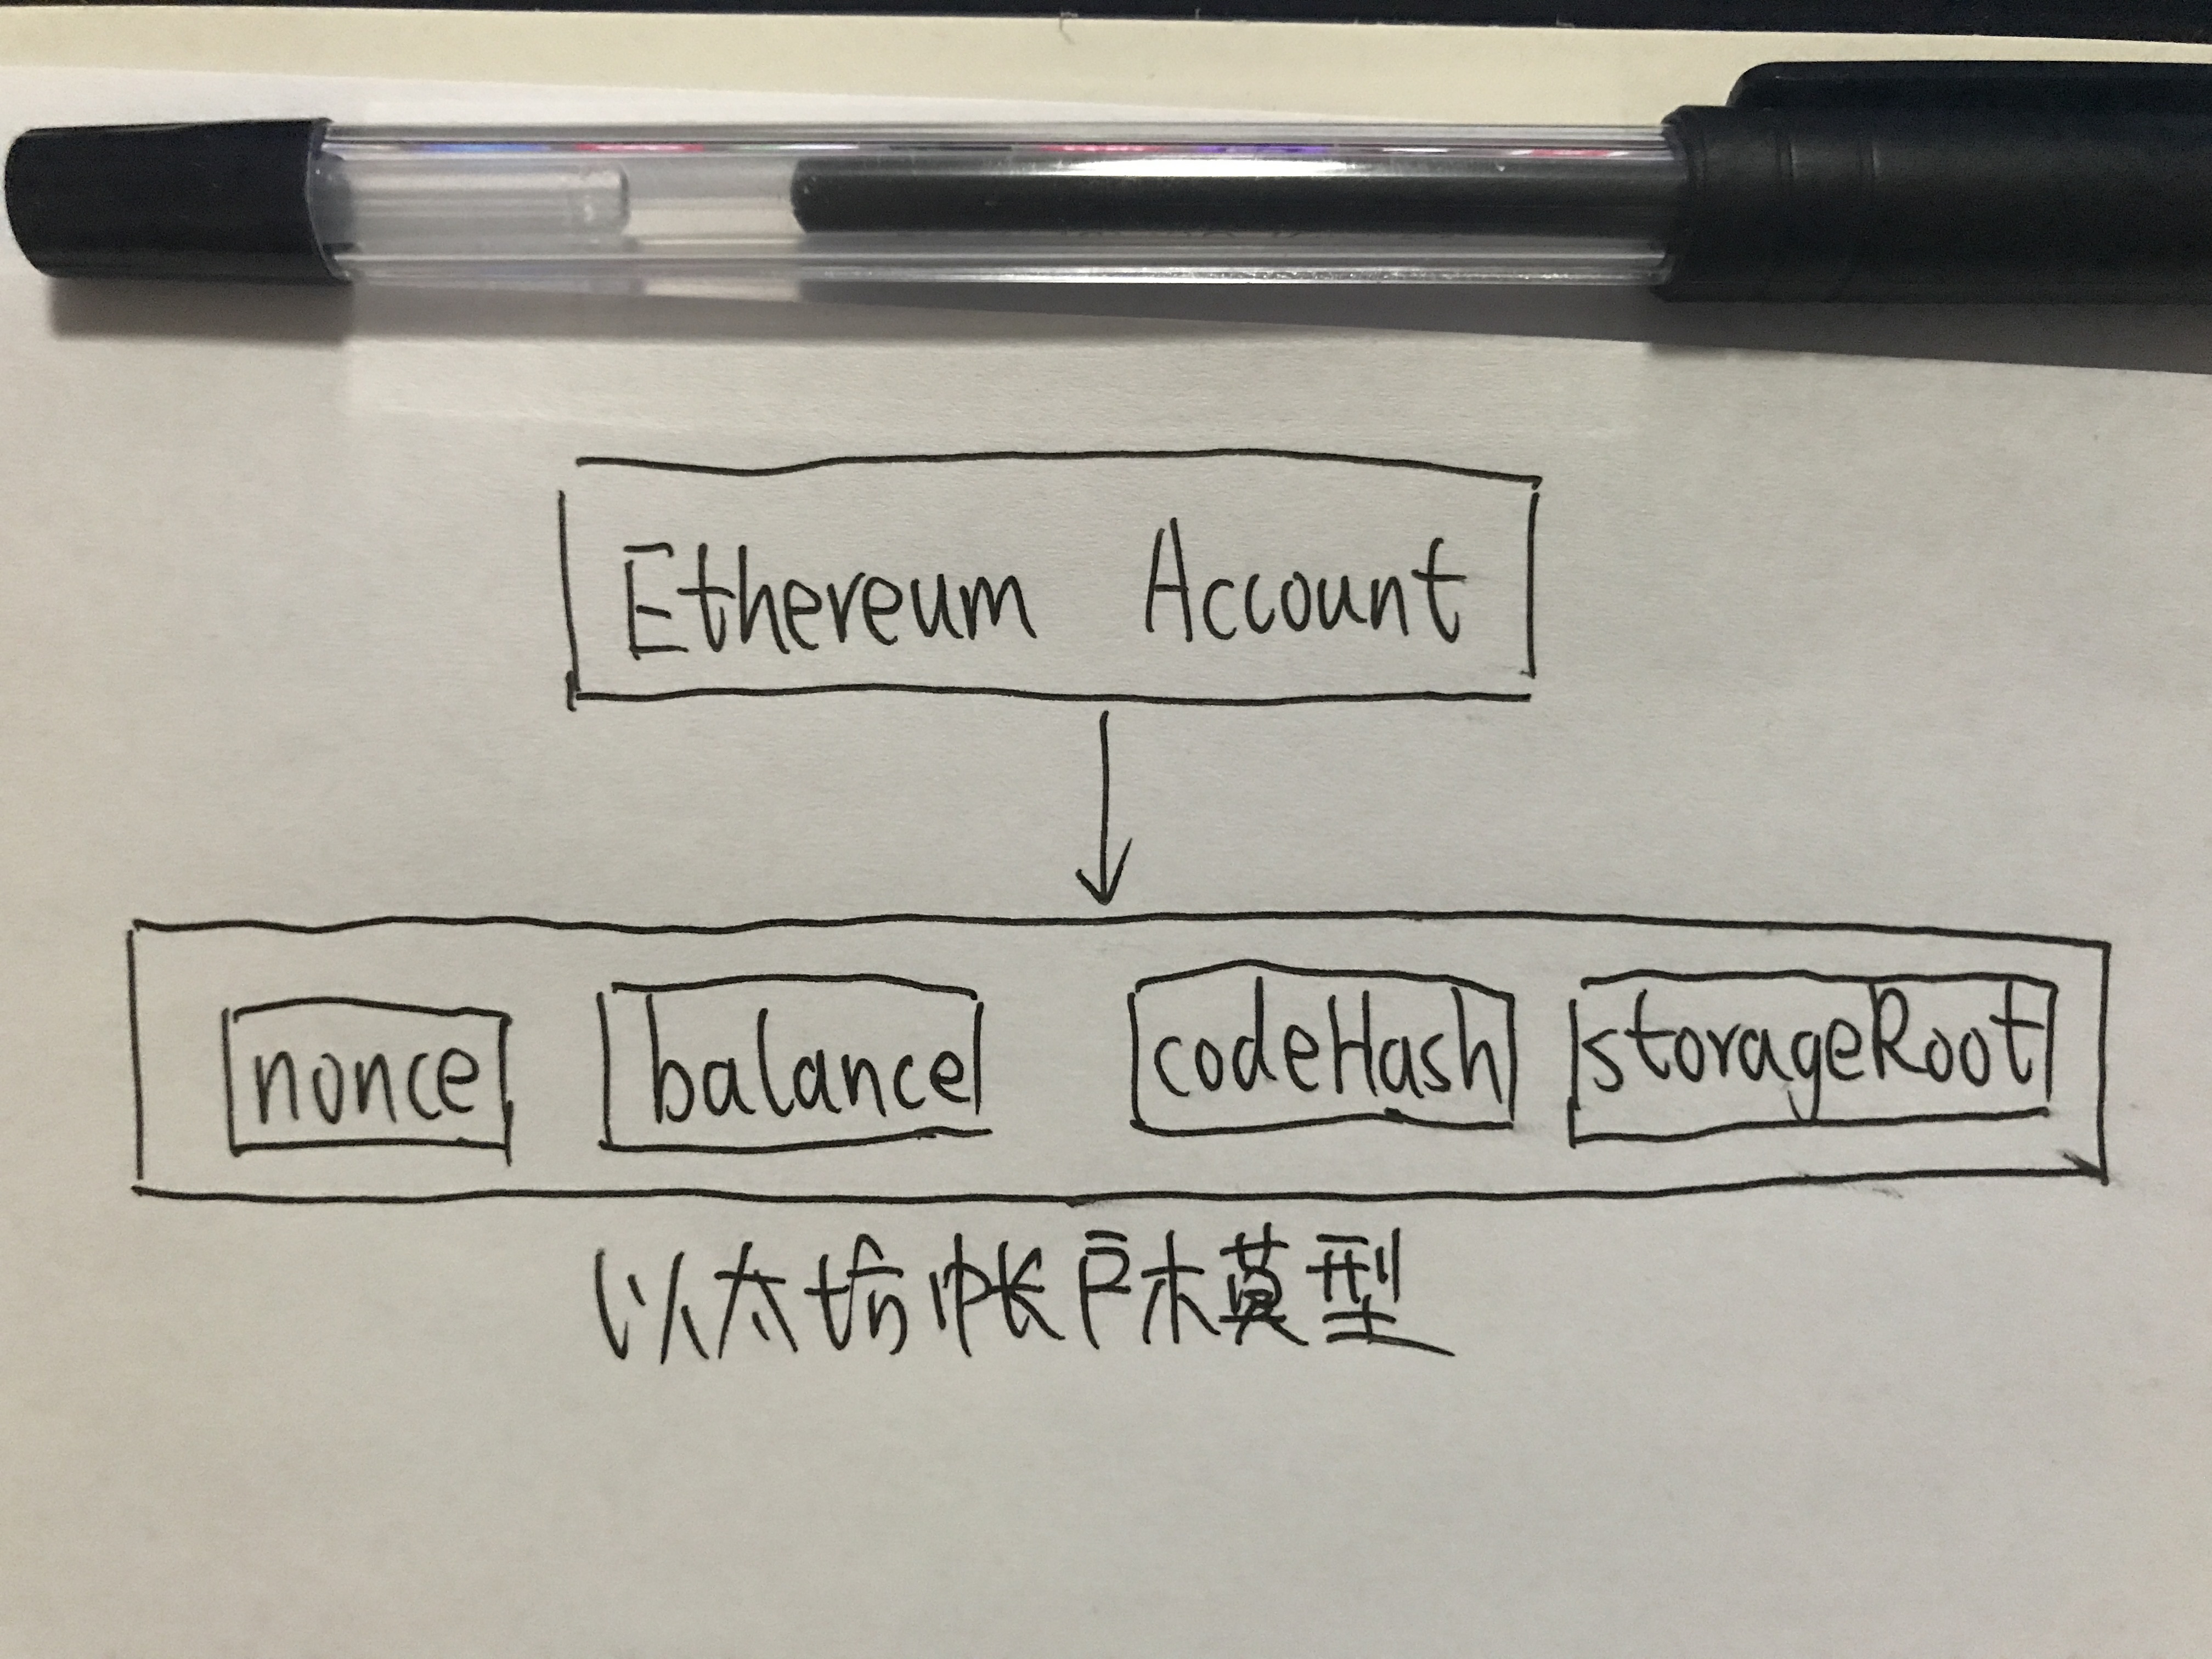 Ethereum Account
nonce balance codeHash storageRoot
以太坊帐户模型